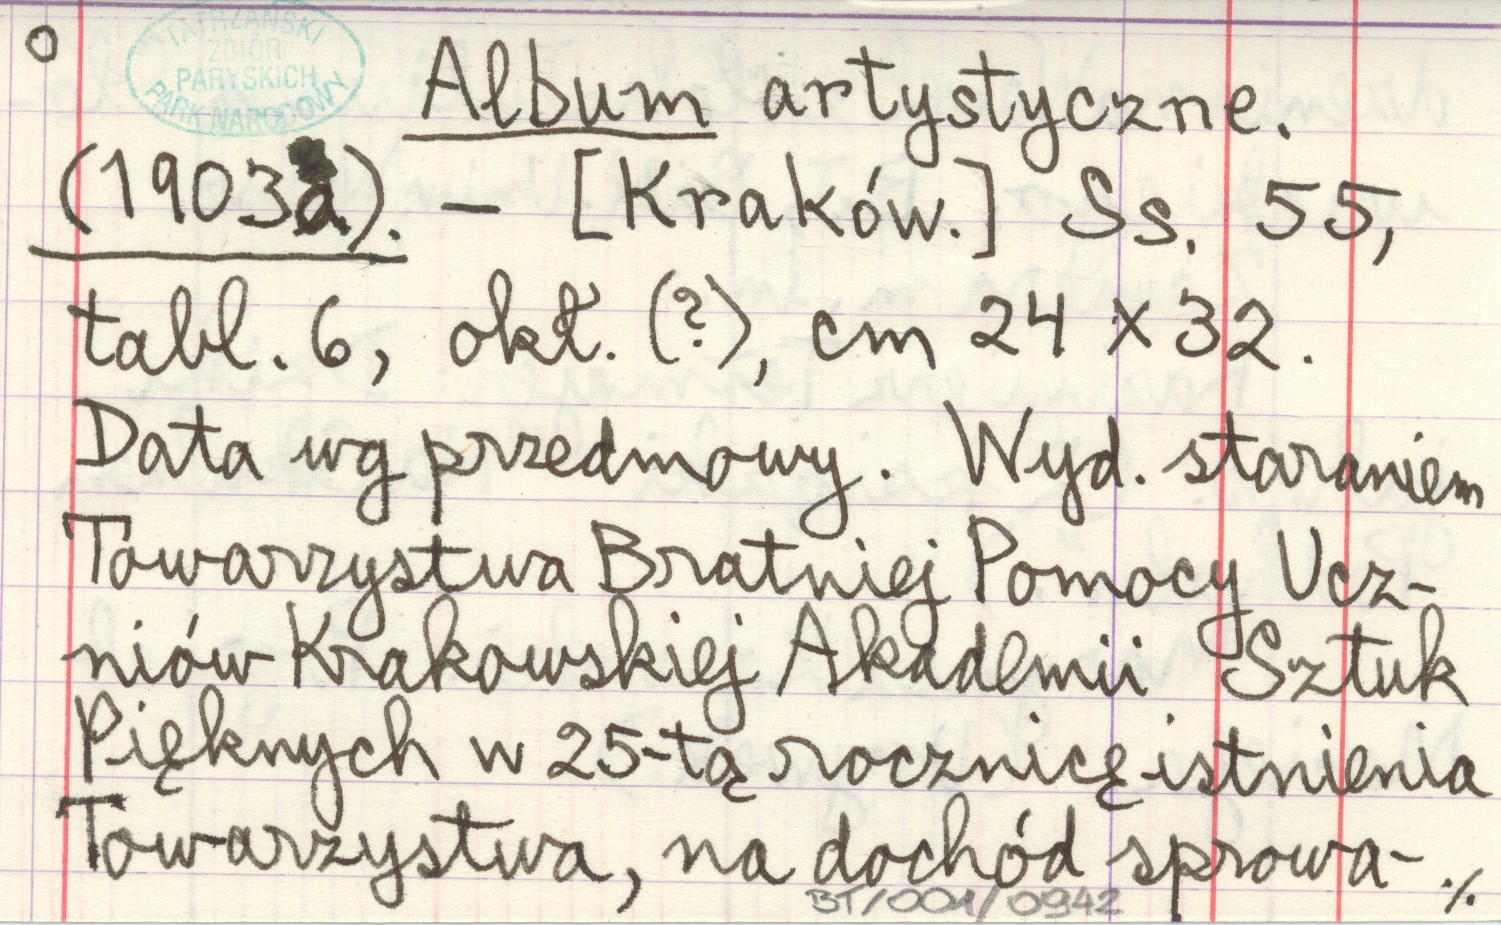 TATRZAŃSKI
ZBIÓR
PARYSKICH
PARK NARODOWY
Album artystyczne.
(1903a). - [Kraków.] Ss. 55,
tabl. 6, okł. (?), cm 24 x 32.
Data wg przedmowy. Wyd. staraniem
Towarzystwa Bratniej Pomocy Ucz-
niów Krakowskiej Akademii Sztuk
Pięknych w 25-tą rocznicę istnienia
Towarzystwa, na dochód sprowa- ./.
BT/001/0942